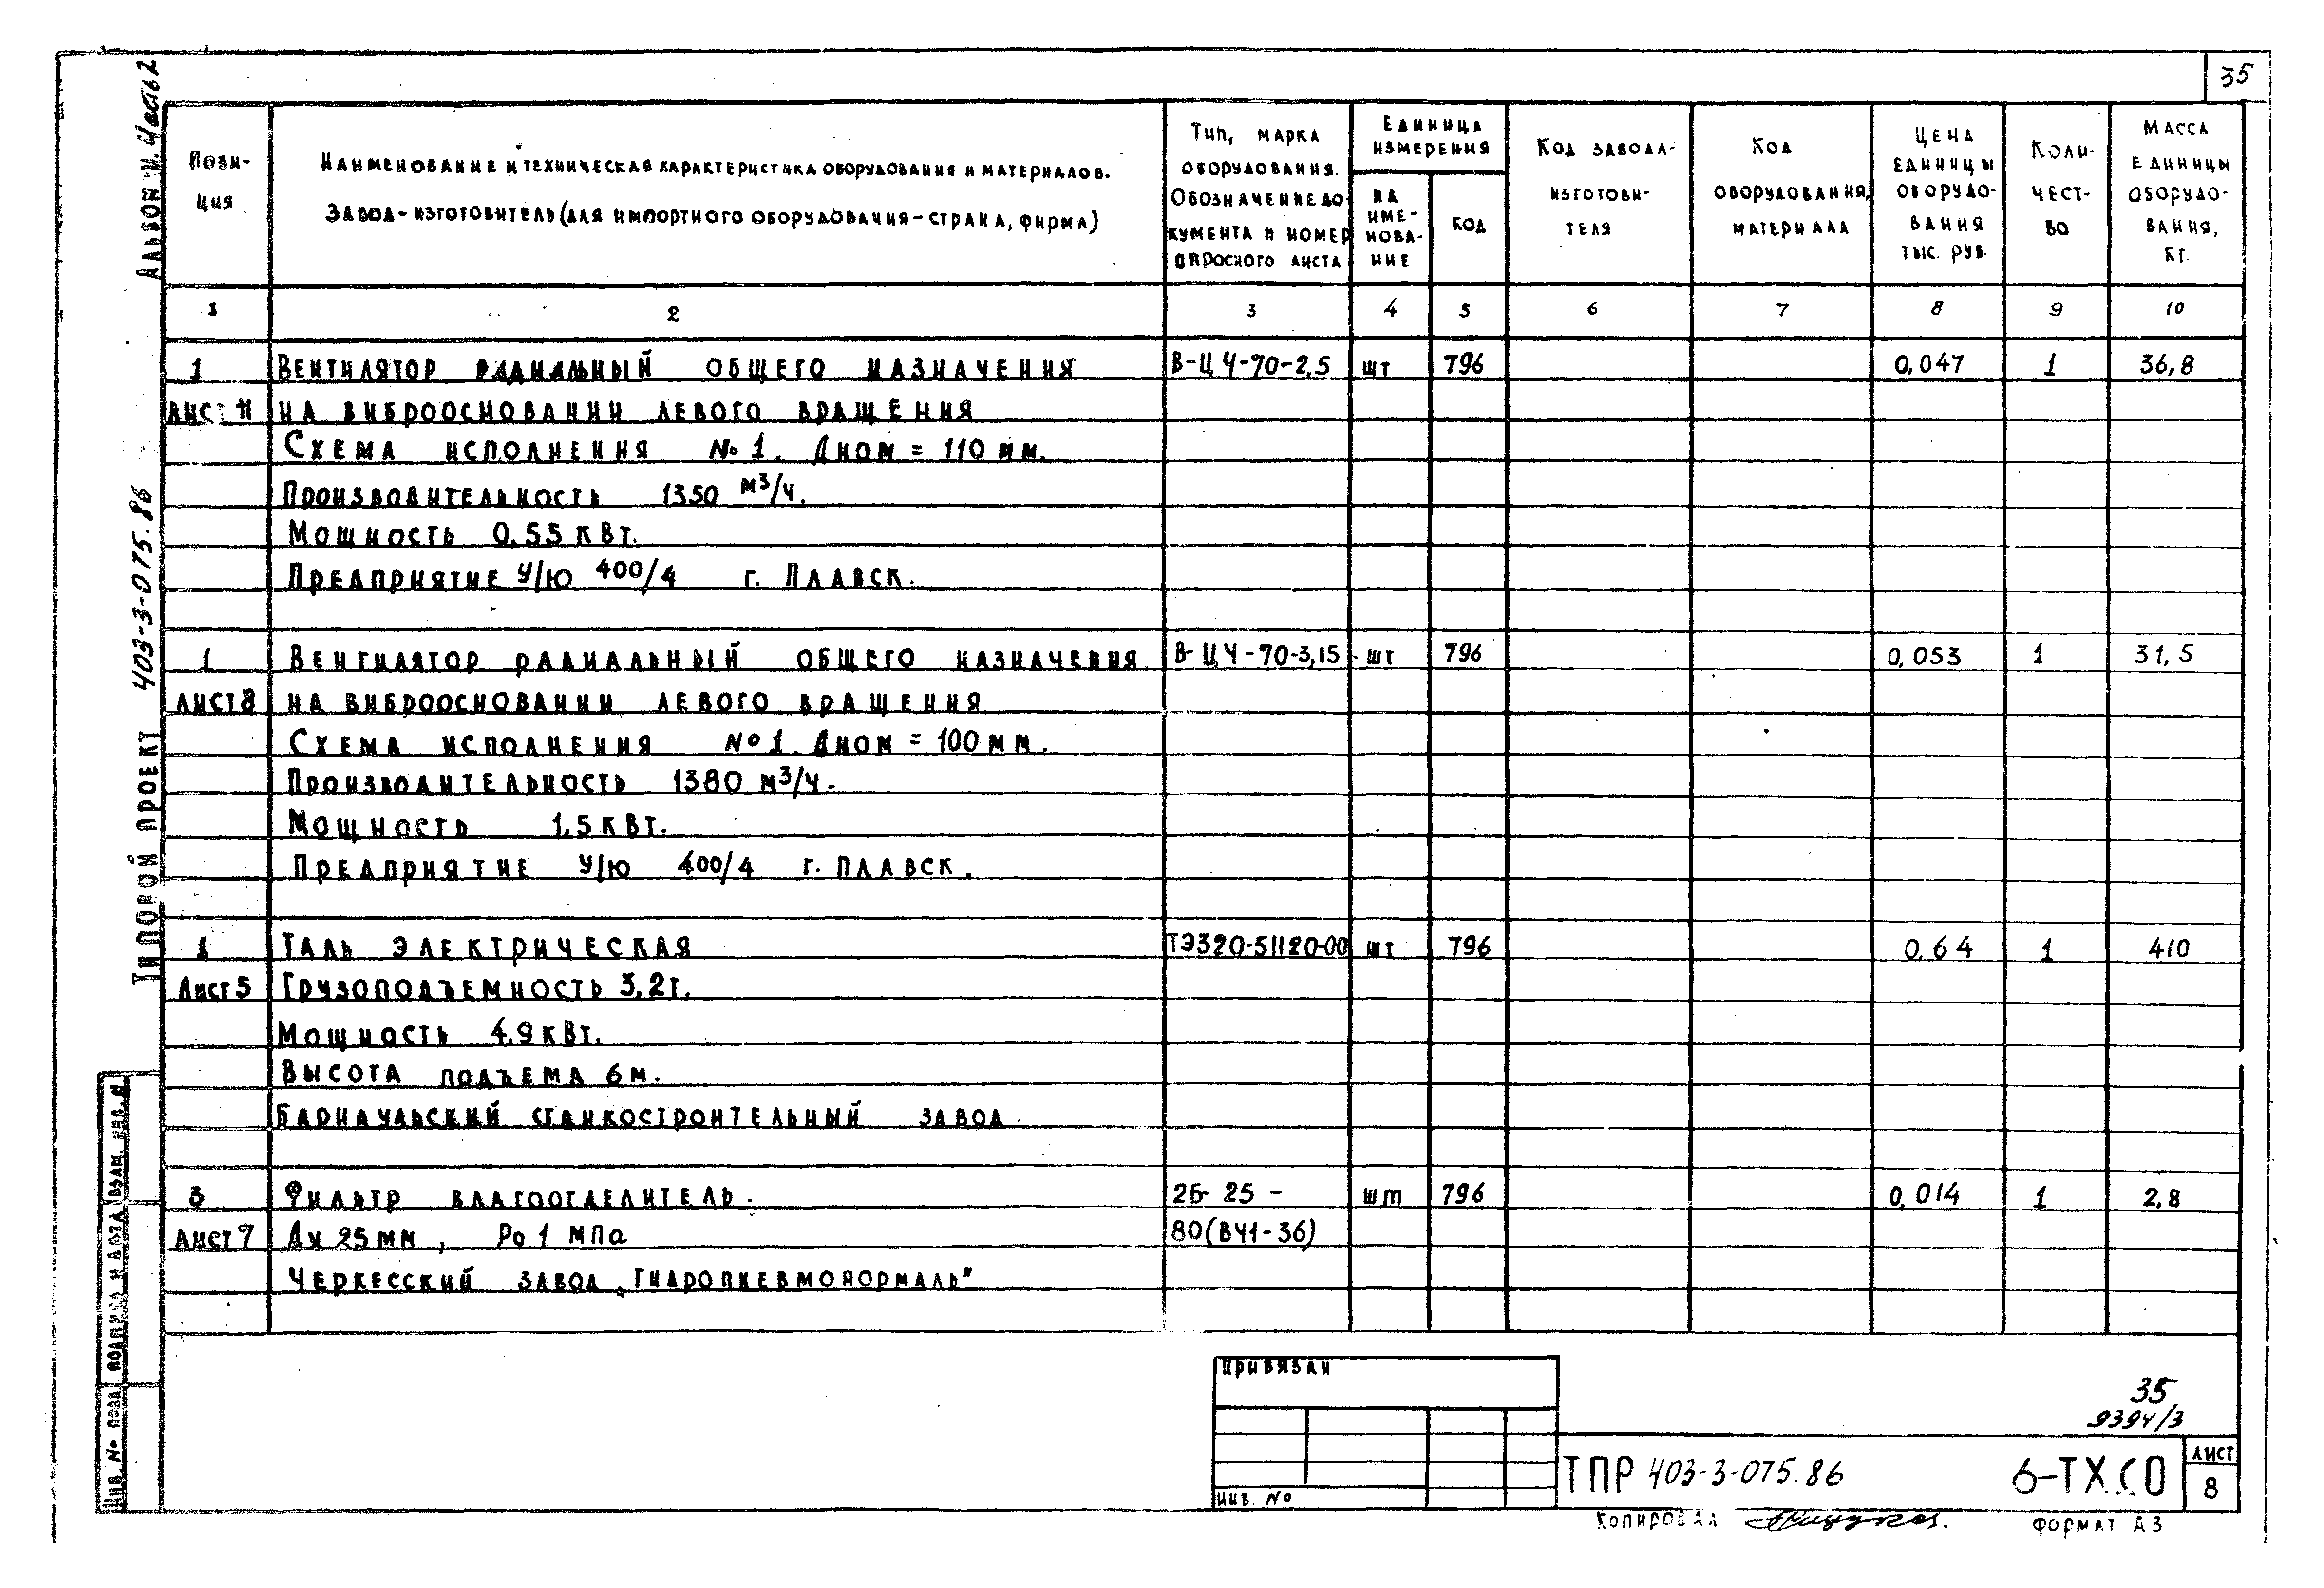 35
Альбом II. Часть 2
Типовой проект 403-3-075.86
Пози-
ция
Наименование и техническая характеристика оборудования и материалов.
Завод-изготовитель (для импортного оборудования-страна, фирма)
Тип, марка
оборудования.
Обозначение до-
кумента и номер
опросного листа
Единица
измерения
На
име-
нова-
ние
Код
Код завода-
изготови-
теля
Код
оборудования,
материала
Цена
единицы
оборудо-
вания
тыс. руб.
Коли-
чест-
во
Масса
единицы
оборудо-
вания,
кг.
1 2 3 4 5 6 7 8 9 10
1 Вентилятор радиальный общего назначения В-Ц4-70-2,5 шт 796 0,047 1 36,8
Лист 11 на виброосновании левого вращения
Схема исполнения №1. Дном = 110 мм.
Производительность 1350 м3/ч.
Мощность 0,55 кВт.
Предприятие У/Ю 400/4 г. Плавск.
1 Вентилятор радиальный общего назначения В-Ц4-70-3,15 шт 796 0,053 1 31,5
Лист 8 на виброосновании левого вращения
Схема исполнения №1. Дном = 100 мм.
Производительность 1380 м3/ч.
Мощность 1,5 кВт.
Предприятие У/Ю 400/4 г. Плавск.
1 Таль электрическая ТЭ320-51120-00 шт 796 0,64 1 410
Лист 5 Грузоподъемность 3,2т.
Мощность 4,9 кВт.
Высота подъема 6 м.
Барнаульский станкостроительный завод.
3 Фильтр влагоотделитель. 2Б-25- шт 796 0,014 1 2,8
Лист 7 Ду 25 мм, Ро 1 МПа 80(В41-36)
Черкесский завод „Гидропневмонормаль"
Инв. № подл. Подпись и дата Взам. инв. №
Привязан
Инв. №
35
9394/3
ТПР 403-3-075.86 6-ТХ.СО
Лист
8
Копировал
Формат А3